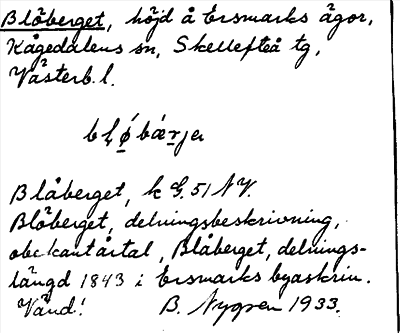 Blöberget, höjd å Ersmarks ägor,
Kågedalens sn, Skellefteå tg,
Västerb. l.
Blåberget, k G. 51 NV.
Blöberget, delningsbeskrivning,
obekant årtal, Blåberget, delnings-
längd 1843 i Ersmarks byaskrin.
Vänd! B. Nygren 1933.